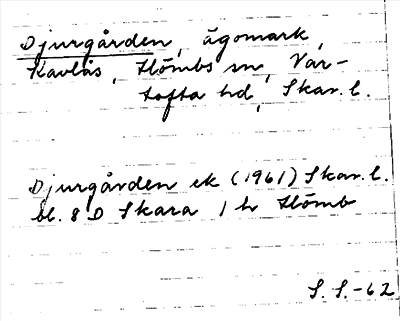 Djurgården, ägomark,
Kavlås, Hömbs sn, Var-
tofta hd, Skar. l.
Djurgården ek (1961) Skar. l.
bl. 8 D Skara 1 h Hömb
S. S. -62